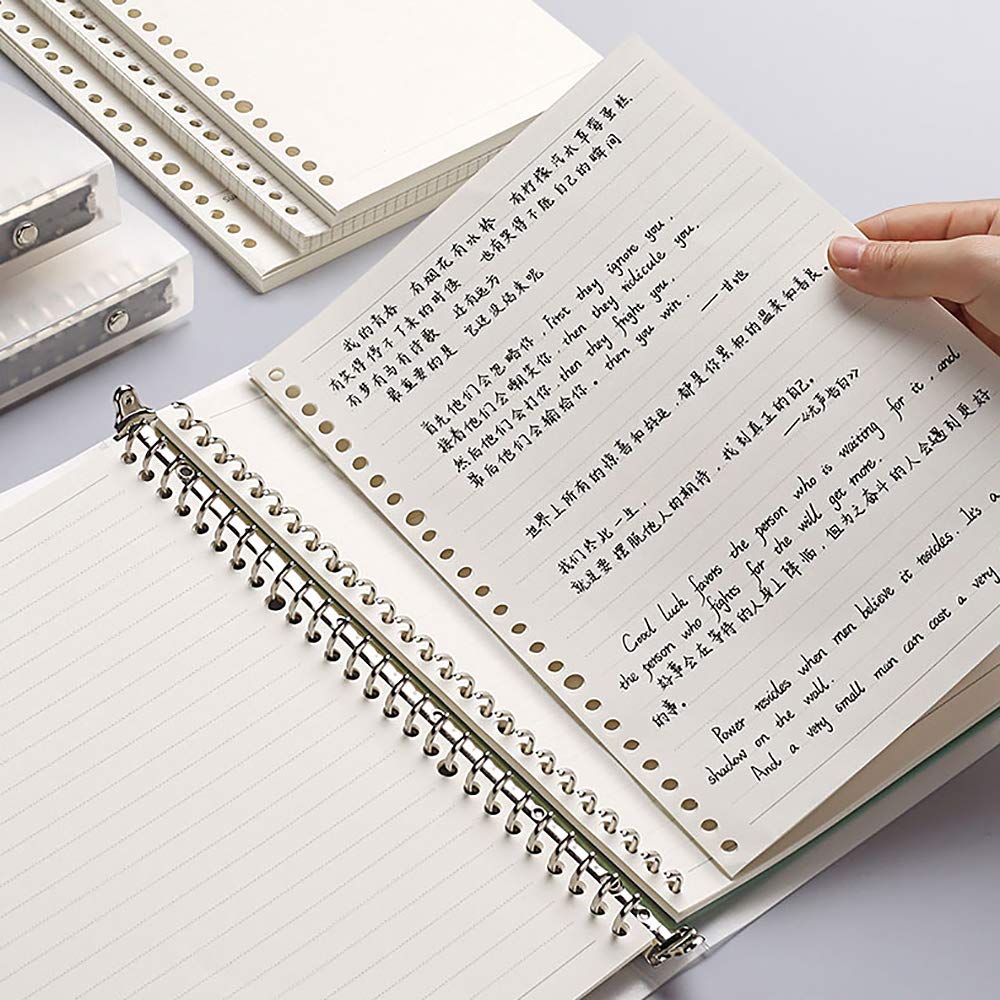 我的青春 有烟花有水枪 有柠檬汽水草莓蛋糕
有笑得停不了来的时候 也有哭得不能自己的瞬间
有梦有马有诗歌 还有远方
最重要的是 它还没结束呢
首先他们会忽略你. First they ignore you.
接着他们会嘲笑你. then they ridicule you.
然后他们会打你. then they fright you.
最后他们会输给你. then you win.
——甘地
世界上所有的惊喜和好运,都是你累积的温柔和善良。
我们终此一生,
就是要摆脱他人的期待,找到真正的自己。
——《无声告白》
Good luck favors the person who is waiting for it, and
the person who fights for the will get more.
好事会在等待的人身上降临,但为之奋斗的人会遇到更好
的事。
Power resides when men believe it resides. It's a
shadow on the wall.
And a very small man can cast a very